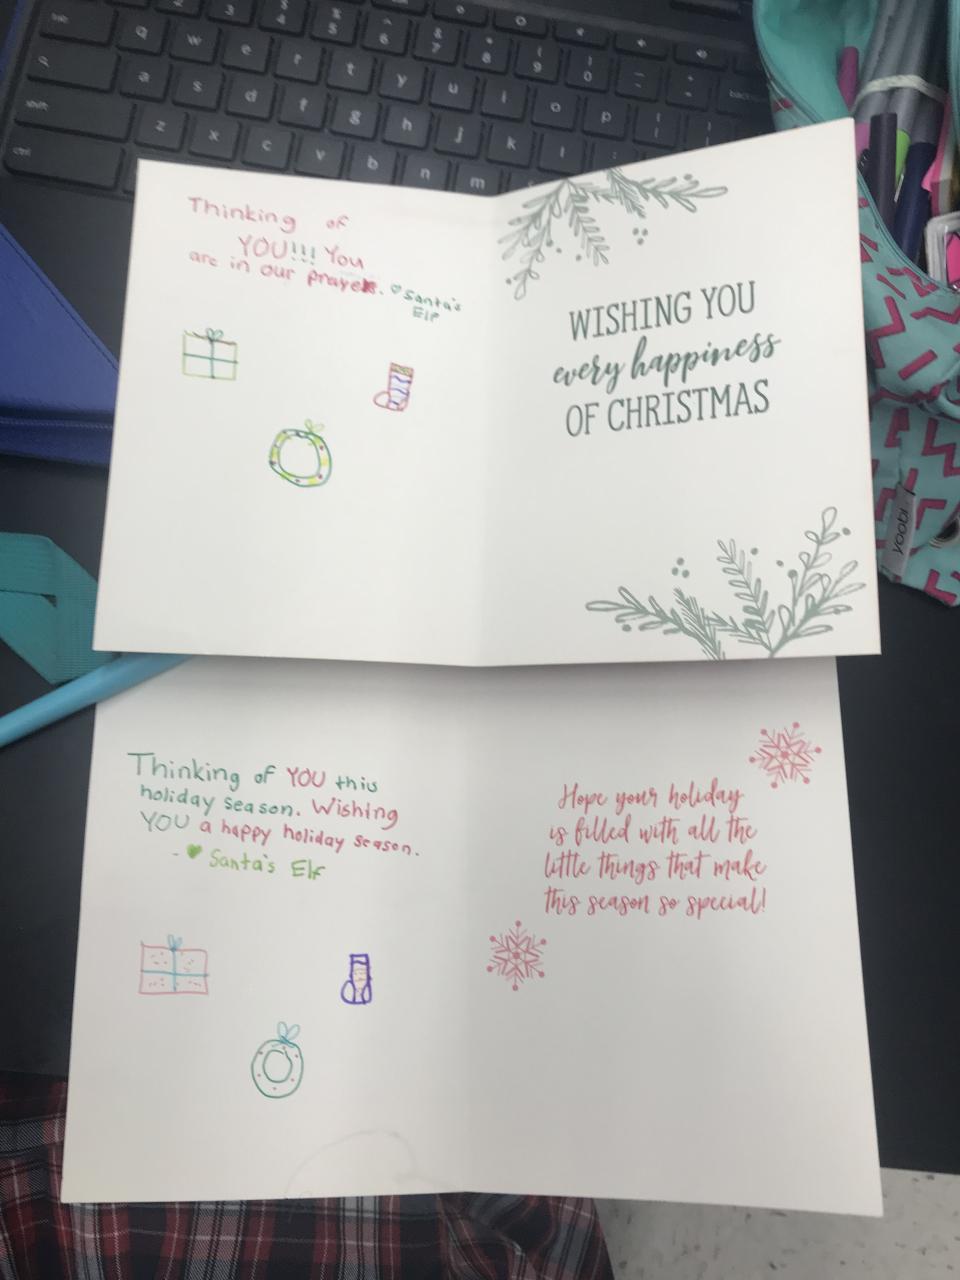 Thinking of
YOU!!! You
are in our prayers. ♡ Santa's
Elf
WISHING YOU
every happiness
OF CHRISTMAS
Thinking of YOU this
holiday season. Wishing
YOU a happy holiday season.
- ♥ Santa's Elf
Hope your holiday
is filled with all the
little things that make
this season so special!
yoobi
q w e r t y u i o p
a s d f g h j k l
shift z x c v b n m
ctrl